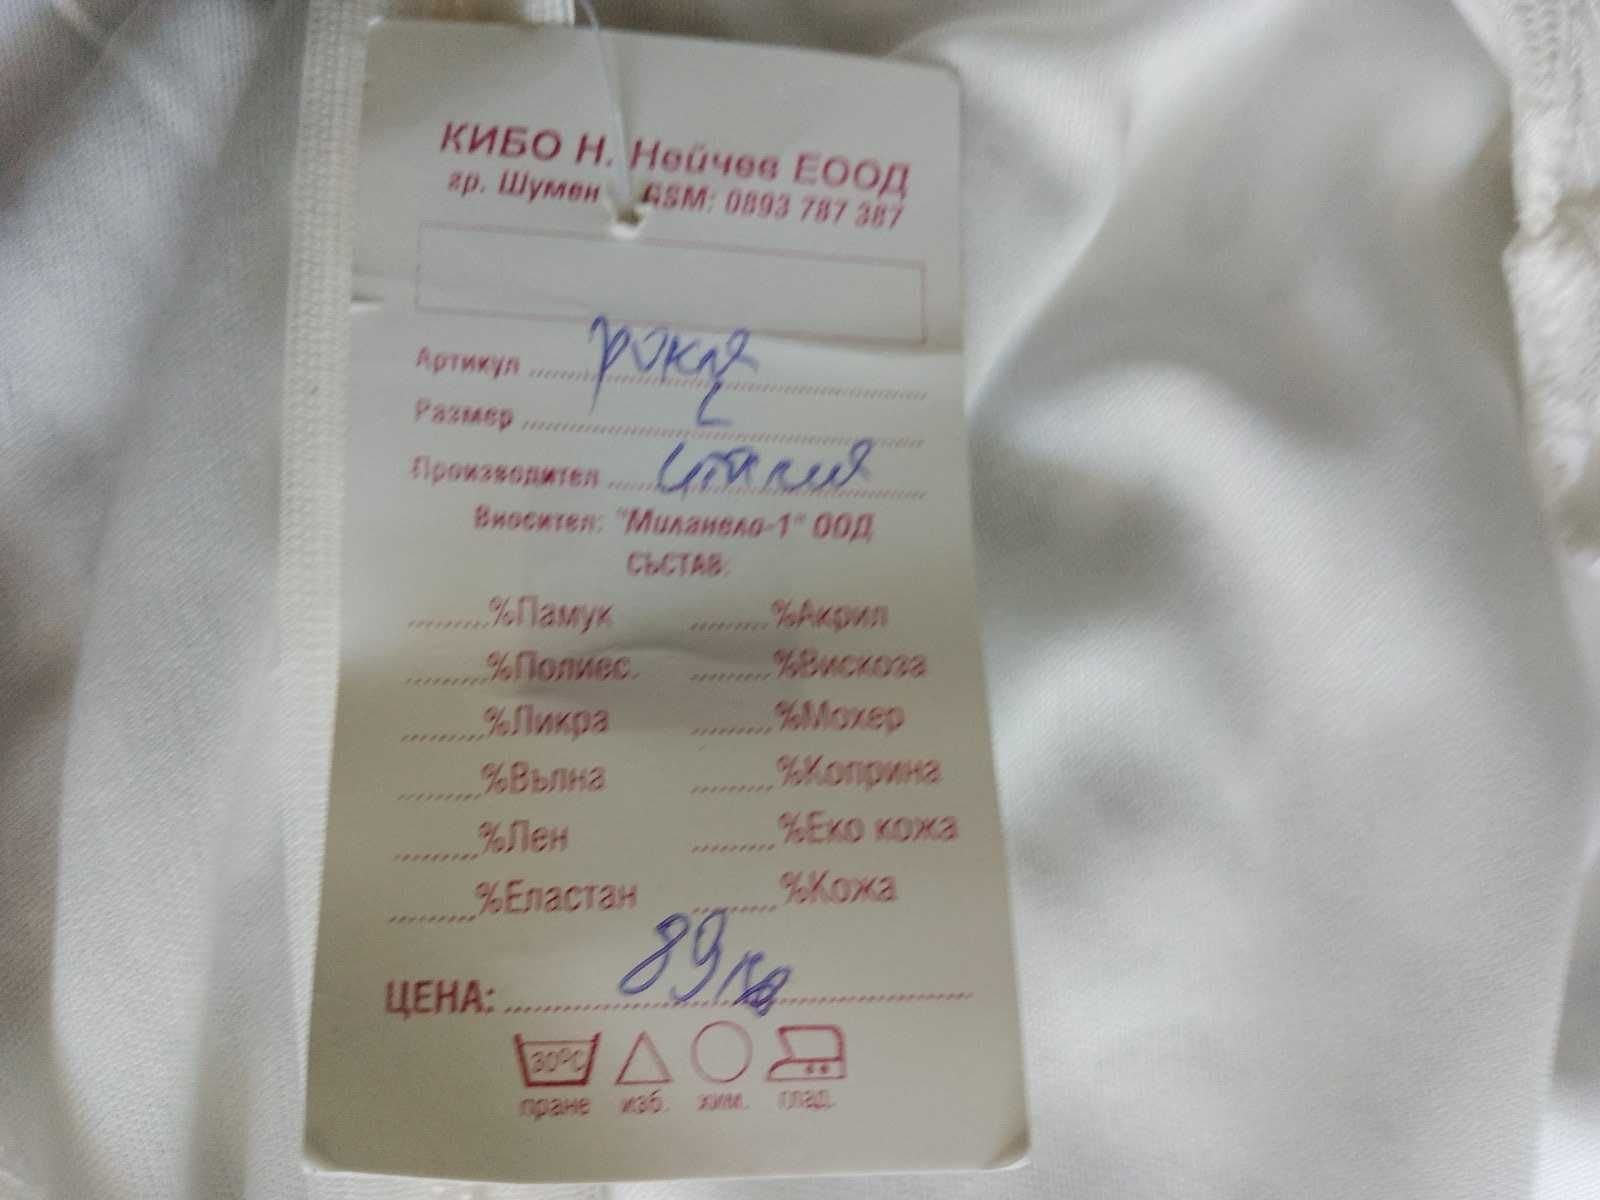 КИБО Н. Нейчев ЕООД
гр. Шумен GSM: 0893 787 387
Артикул рокля
Размер L
Производител италия
Вносител: "Миланело-1" ООД
СЪСТАВ:
%Памук %Акрил
%Полиес. %Вискоза
%Ликра %Мохер
%Вълна %Коприна
%Лен %Еко кожа
%Еластан %Кожа
ЦЕНА: 89лв
30°C
пране изб. хим. глад.